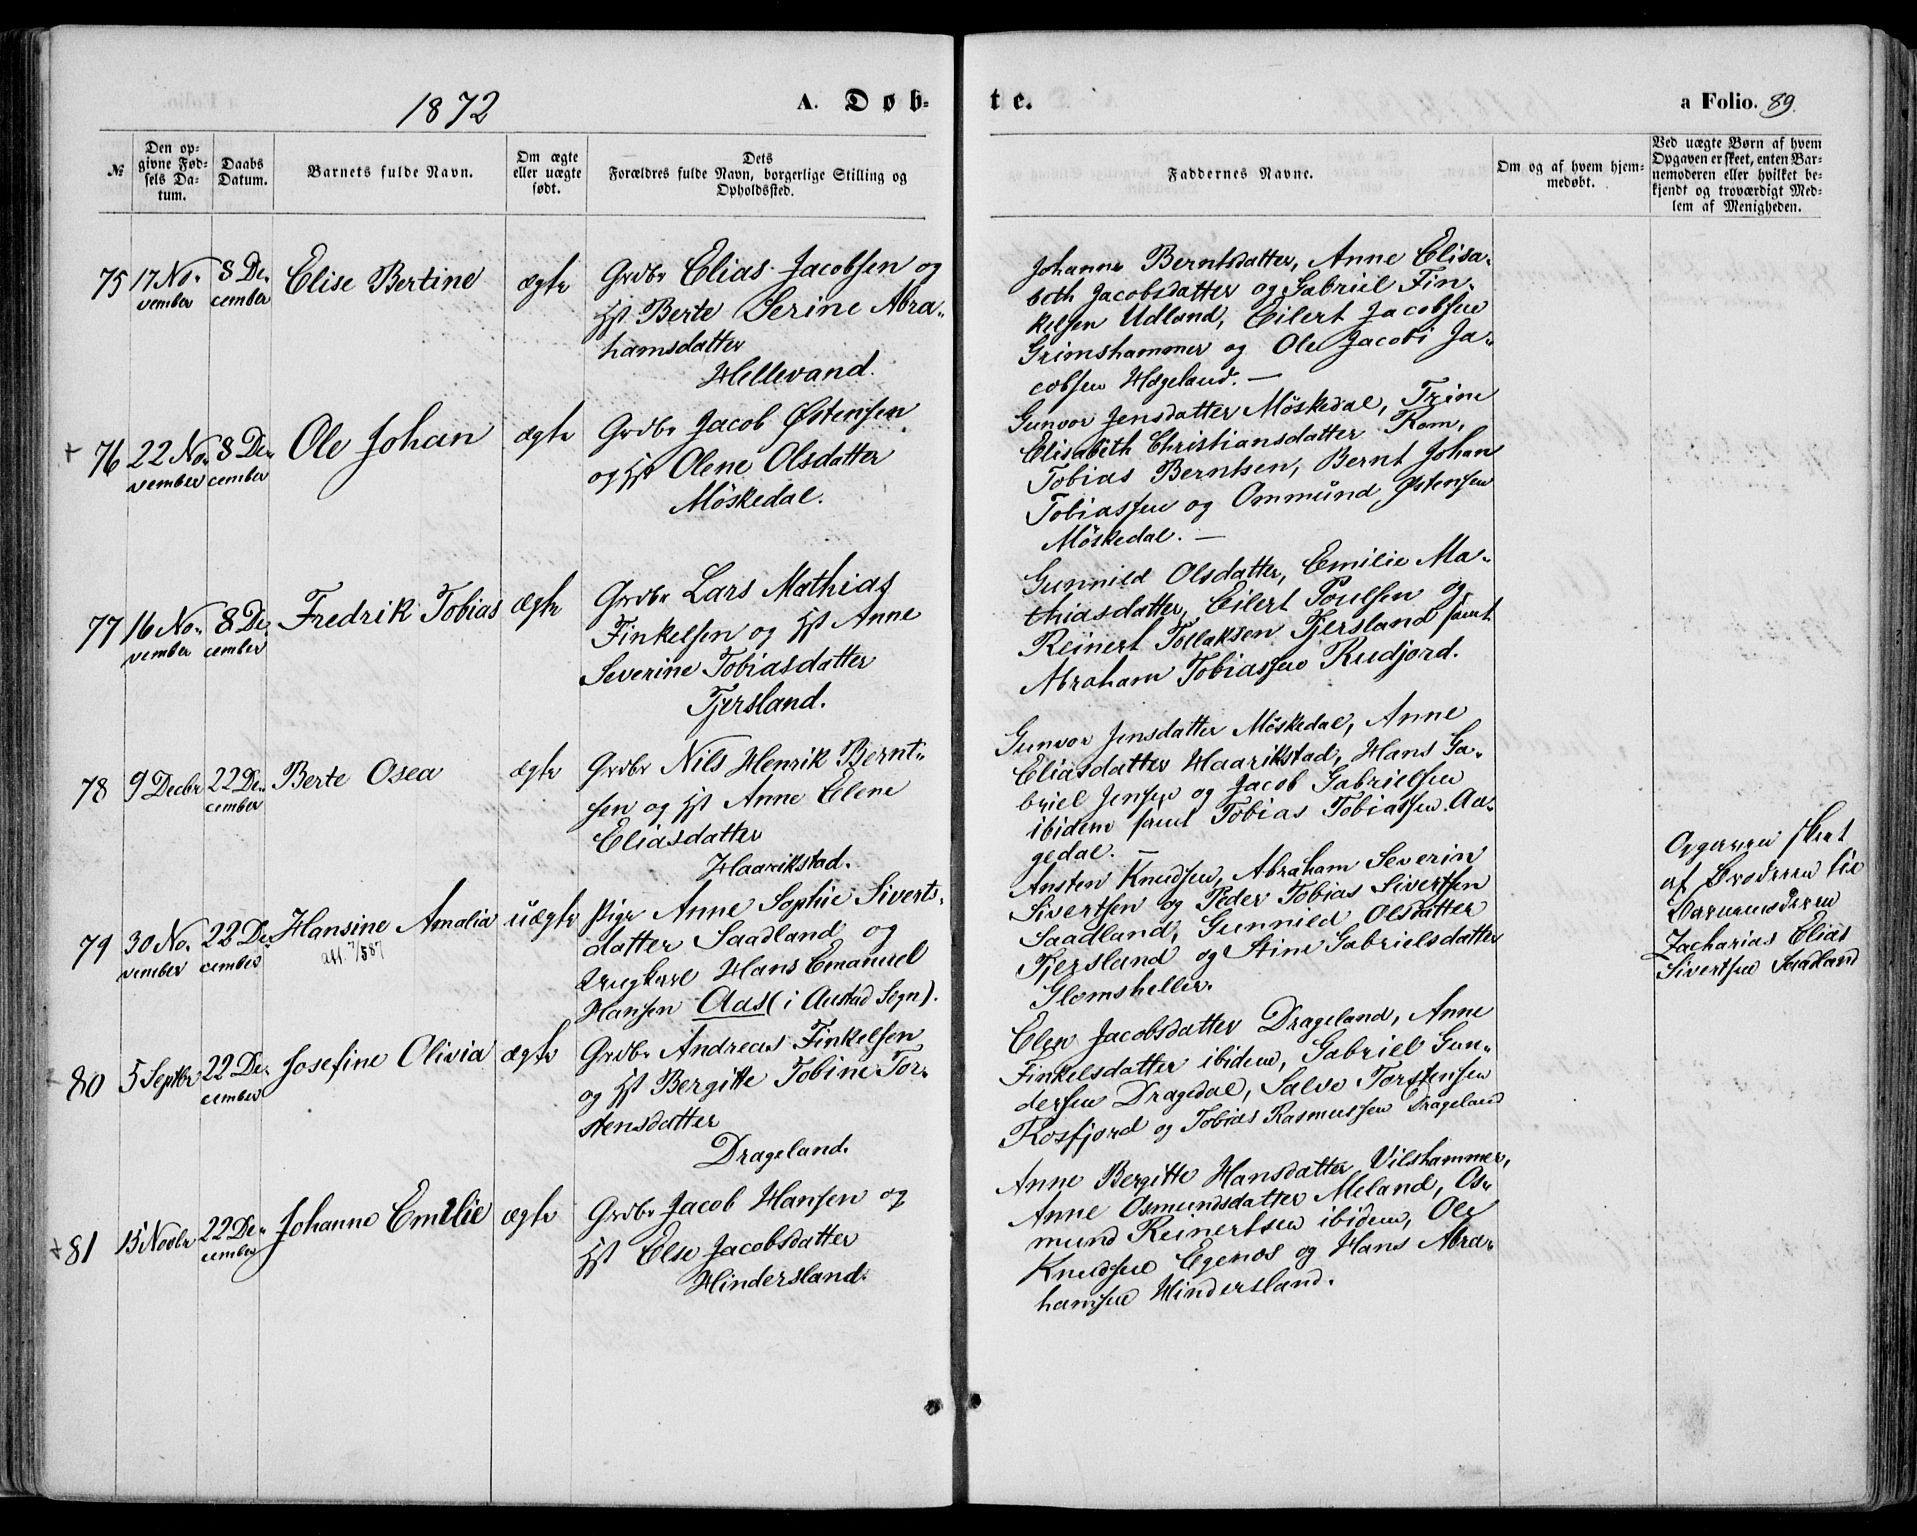 1872
A. Døb-
te.
a Folio. 89.
№
Den op-
givne Fød-
sels Da-
tum.
Daabs
Datum.
Barnets fulde Navn.
Om ægte
eller uægte
født.
Dets
Forældres fulde Navn, borgerlige Stilling og
Opholdssted.
Faddernes Navne.
Om og af hvem hjem-
medøbt.
Ved uægte Børn af hvem
Opgaven er skeet, enten Bar-
nemoderen eller hvilket be-
kjendt og troværdigt Med-
lem af Menigheden.
75
17 No-
vember
8 De-
cember
Elise Bertine
ægte
Grdbr Elias Jacobsen og
Hst Berte Serine Abra-
hamsdatter
Hellevand.
Johanne Berntsdatter, Anne Elisa-
beth Jacobsdatter og Gabriel Fin-
kelsen Udland, Eilert Jacobsen
Grimshammer og Ole Jacobi Ja-
cobsen Hægeland. —
+ 76
22 No-
vember
8 De-
cember
Ole Johan
ægte
Grdbr Jacob Østensen
og Hst Olene Olsdatter
Möskedal.
Gunvor Jensdatter Möskedal, Trine
Elisabeth Christiansdatter Rom,
Tobias Berntsen, Bernt Johan
Tobiassen og Ommund Østensen
Möskedal. —
77
16 No-
vember
8 De-
cember
Fredrik Tobias
ægte
Grdbr Lars Mathias
Finkelsen og Hst Anne
Severine Tobiasdatter
Tjersland.
Gunnild Olsdatter, Emilie Ma-
thiasdatter, Eilert Poulsen og
Reinert Tollaksen Tjersland samt
Abraham Tobiassen Rudjord.
78
9 Decbr
22 De-
cember
Berte Osea
ægte
Grdbr Nils Henrik Bernt-
sen og Hst Anne Elene
Eliasdatter
Haarikstad.
Gunvor Jensdatter Möskedal, Anne
Eliasdatter Haarikstad, Hans Ga-
briel Jensen og Jacob Gabrielsen
ibidem samt Tobias Tobiassen Aa-
gedal. —
79
30 No-
vember
22 De-
cember
Hansine Amalia
att. 7/5 87
uægte
Pige Anne Sophie Siverts-
datter Saadland og
Ungkarl Hans Emanuel
Hansen Aas (i Austad Sogn).
Ansten Knudsen, Abraham Severin
Sivertsen og Peder Tobias Sivertsen
Saadland, Gunnild Olsdatter
Tjersland og Stine Gabrielsdatter
Glomsheller.
Opgaven skeet
af Broderen til
Barnemoderen
Zacharias Elias
Sivertsen Saadland
+ 80
5 Septbr
22 De-
cember
Josefine Olivia
ægte
Grdbr Andreas Finkelsen
og Hst Bergitte Tobine Tor-
stensdatter
Drageland.
Elen Jacobsdatter Drageland, Anne
Finkelsdatter ibidem, Gabriel Gun-
dersen Dragedal, Salve Torstensen
Rosfjord og Tobias Rasmussen Drageland
+ 81
15 Novbr
22 De-
cember
Johanne Emilie
ægte
Grdbr Jacob Hansen og
Hst Else Jacobsdatter
Hindersland.
Anne Bergitte Hansdatter Vilshammer,
Anne Osmundsdatter Meland, Os-
mund Reinertsen ibidem, Ole
Knudsen Egenos og Hans Abra-
hamsen Hindersland.